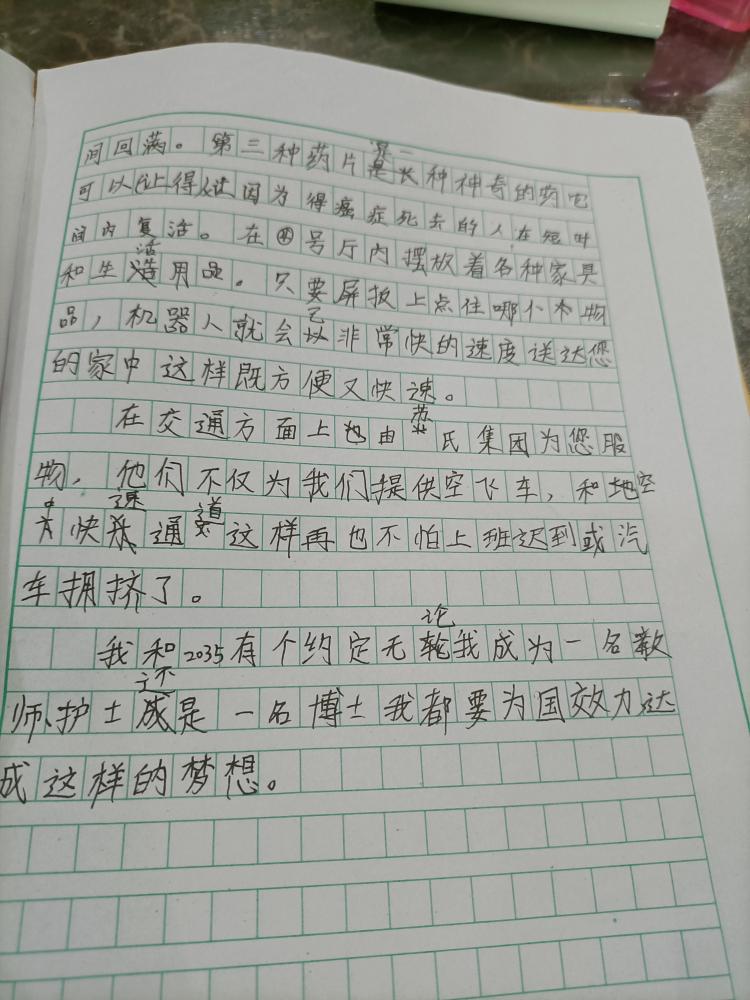 间回满。第三种药片是一种神奇的药它
可以让得让因为得癌症死去的人在短时
间内复活。在④号厅内摆放着各种家具
和生活用品。只要屏板上点住哪个物
品，机器人就会以非常快的速度送达您
的家中这样既方便又快速。
在交通方面上也由苏氏集团为您服
物，他们不仅为我们提供空飞车，和地空
快速通道这样再也不怕上班迟到或汽
车拥挤了。
我和2035有个约定无论我成为一名教
师、护士还是一名博士我都要为国效力达
成这样的梦想。